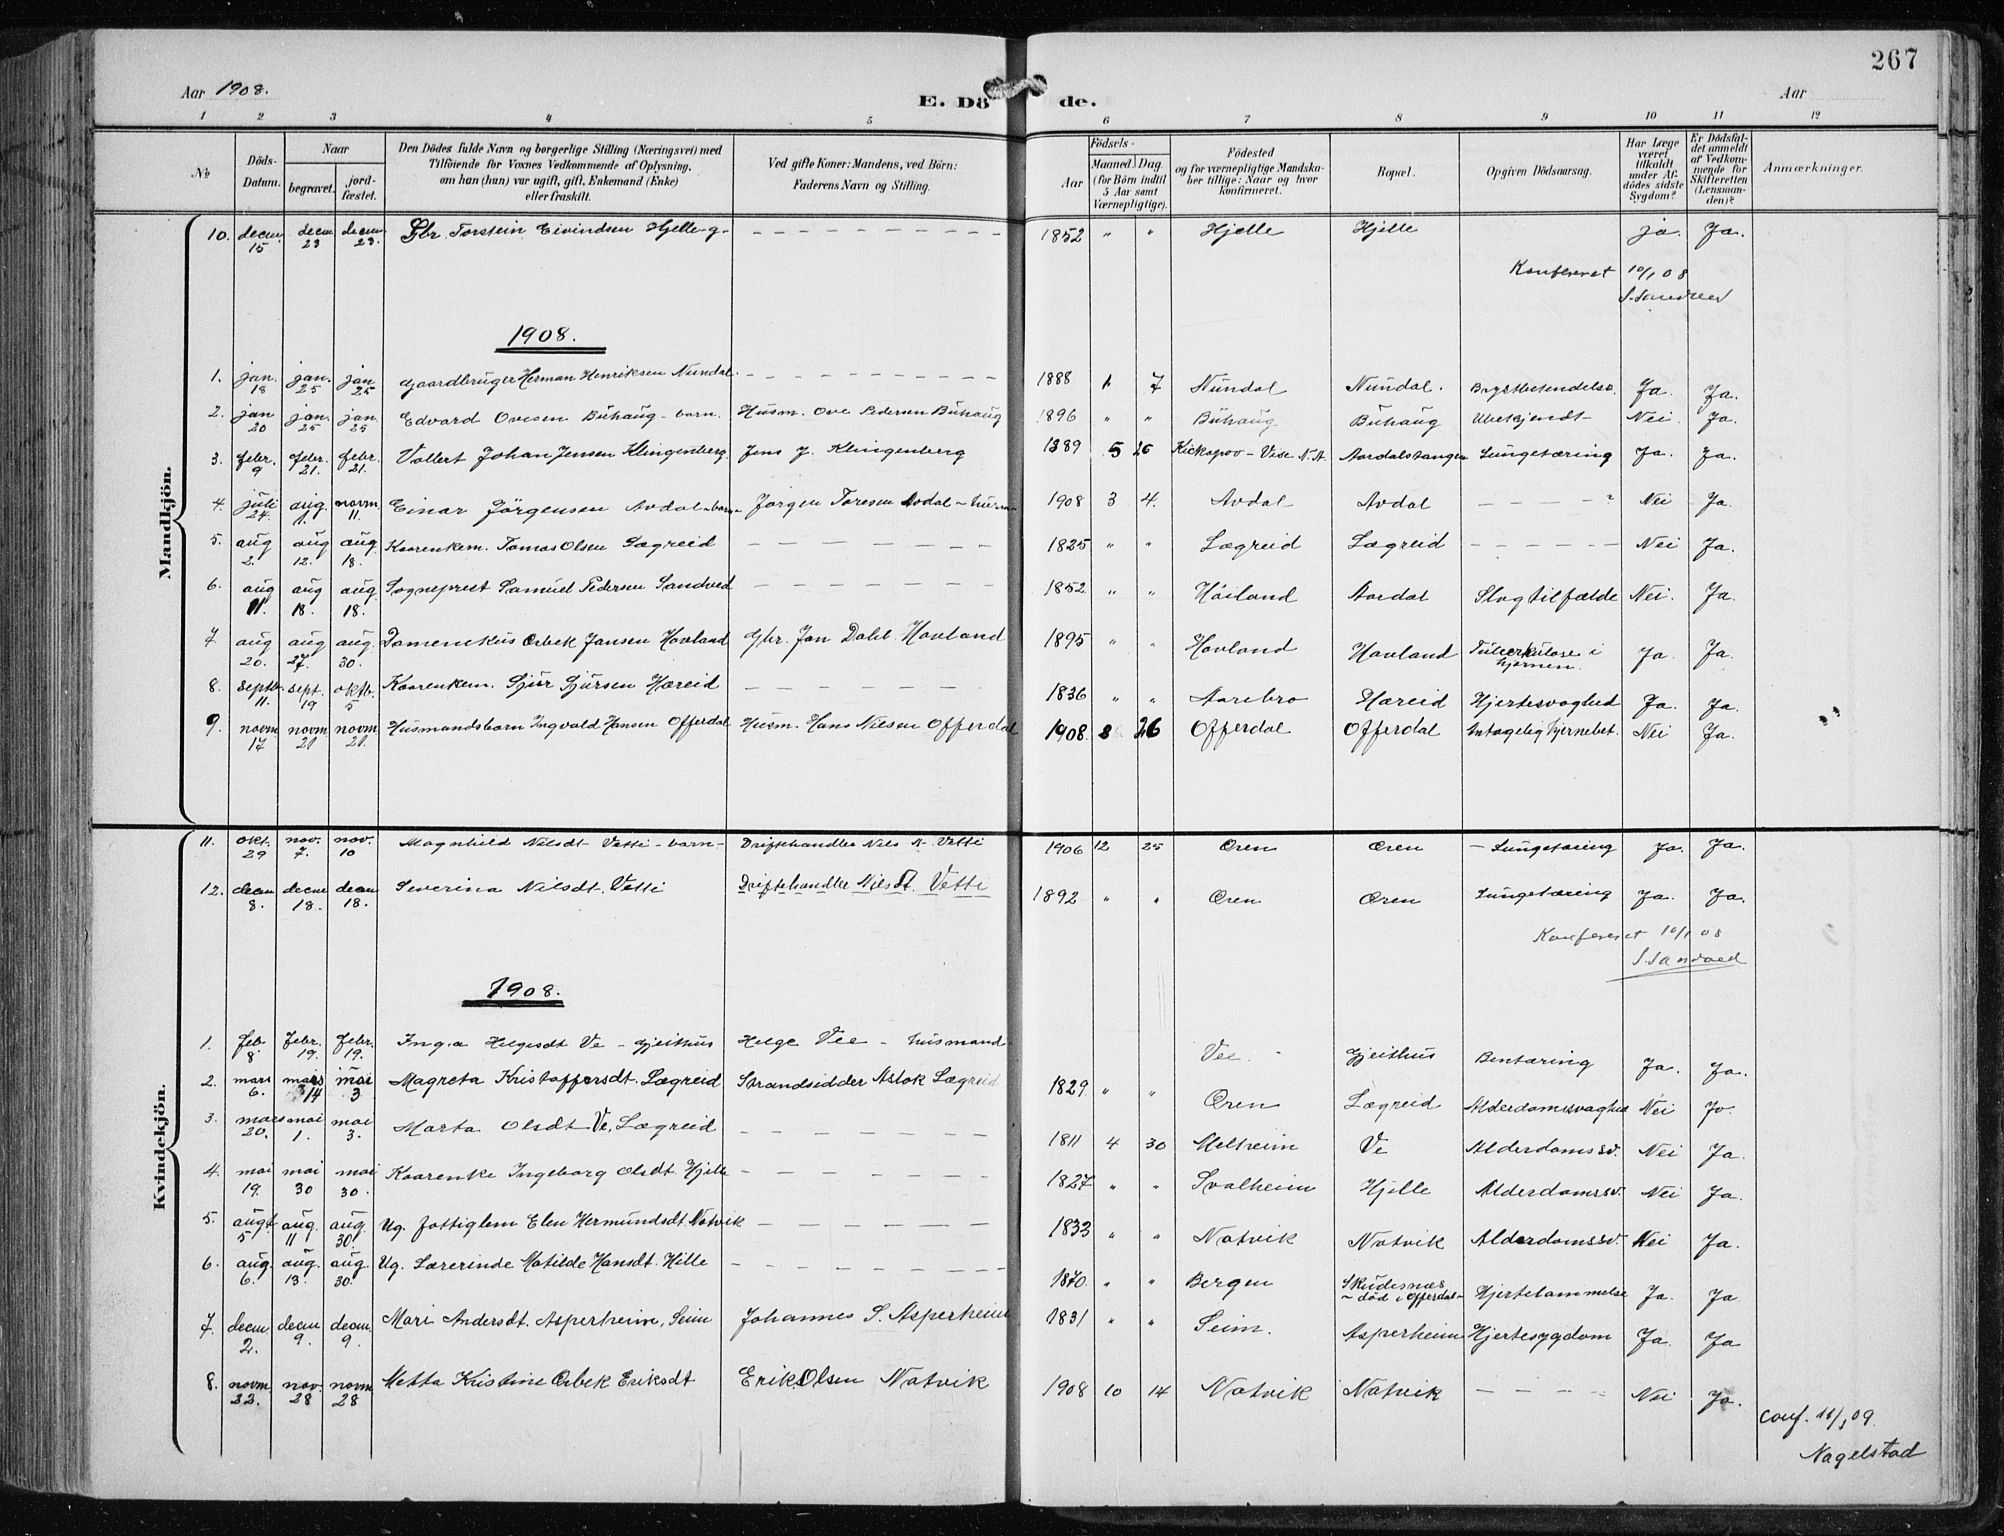 267
Aar 1908.
E. Dö de.
Aar
1 2 3 4 5 6 7 8 9 10 11 12
No
Döds-Datum.
Naar
begravet.
jord-fæstet.
Den Dödes fulde Navn og borgerlige Stilling (Næringsvei) med
Tilföiende for Voxnes Vedkommende af Oplysning,
om han (hun) var ugift, gift, Enkemand (Enke)
eller fraskilt.
Ved gifte Koner: Mandens, ved Börn:
Faderens Navn og Stilling.
Födsels-
Aar
Maaned. Dag.
(for Börn indtil 5 Aar samt Værnepligtige).
Födested
og for værnepligtige Mandska-
ber tillige: Naar og hvor
konfirmeret.
Bopæl.
Opgiven Dödsaarsag.
Har Læge været tilkaldt under Af-dödes sidste Sygdom?
Er Dödsfal-det anmeldt af Vedkom-mende for Skifteretten (Lensman-den)?
Anmærkninger.
Mandkjön.
10. decm 15 decm 23 decm 23. Gbr. Torstein Eivindsen Hjelle g- 1852 " " Hjelle Hjelle ja. Ja.
Konfereret 10/1 08
S. Sandved
1908.
1. jan. 18 jan. 25 jan 25 Gaardbruger Herman Henriksen Nundal. 1888 1 7 Nundal Nundal. Brystbetendelse. Ja. Ja.
2. jan 20 jan. 25 jan. 25 Edvard Ovesen Buhaug - barn. Husm. Ove Pedersen Buhaug 1896 " " Buhaug Buhaug Ubekjendt Nei. Ja.
3. febr. 9 febr. 21. febr. 21. Vollert Johan Jensen Klingenberg. Jens J. Klingenberg 1889 5 26 Kickapoo - Vise N.A. Aardalstangen Lungetæring Ja. Ja.
4. juli 24. aug. 1. novm. 11. Einar Jörgensen Avdal - barn - Jörgen Toresen Avdal - husm - 1908 3 4. Avdal Avdal ? Nei Ja
5. aug 2. aug 12. aug 18. Kaarenkem. Tomas Olsen Lægreid 1825 " " Lægreid Lægreid Nei Ja.
6. aug 11. aug 18. aug. 18. Sogneprest Samuel Pedersen Sandved 1852 " " Höiland Aardal Slagtilfælde Nei. Ja.
7 aug 20. aug 27. aug. 30. Damenikus Orbek Jansen Hovland Gbr. Jan Dahl Hovland 1895 " " Hovland Hovland Tuberkulose i hjernen. Ja. Ja.
8. septb. 11. sept. 19 oktb. 5 Kaarenkem. Sjur Sjursen Hæreid 1836 " " Aarebro Hæreid Hjertesvaghed Ja. Ja.
9. novm. 17 novm. 21 novm 21. Husmandsbarn Ingvald Hansen Offerdal Husm. Hans Nilsen Offerdal 1908 8 26 Offerdal Offerdal Antagelig hjernebet. Nei Ja.
Kvindekjön.
11. okt. 29 nov. 7. nov. 10 Magnhild Nilsdt. Vetti - barn - Driftehandler Nils A. Vetti 1906 12 25 Øren Øren - Lungetæring Ja. Ja.
12. decm 8. decm 18. decm 18. Severina Nilsdt. Vetti Driftehandler Nils T. Vetti 1892 " " Øren Øren Lungetæring Ja. Ja.
Konfereret 10/1 08
S. Sandved
1908.
1. feb 8. febr. 19. febr. 19. Inga Helgesdt Ve - Gjeithus Helge Vee - husmand Vee. Gjeithus Bentæring Ja. Ja.
2. mars 6. mars 14 mai 3. Magreta Kristoffersdt. Lægreid Strandsidder Aslak Lægreid 1829 " " Øren Lægreid Alderdomssvaghed Nei Ja
3. mars 20. mai 1. mai 3. Marta Olsdt Ve, Lægreid 1811 4 30 Melheim Ve Alderdomssv. Nei Ja.
4. mai 19. mai 30 mai 30. Kaarenke Ingeborg Olsdt. Hjelle 1827 " " Svalheim Hjelle Alderdomssv. Nei Ja.
5. augt 5 aug. 11 aug. 30. Ug. Fattiglem Elen Hermundsdt. Natvik 1833 " " Natvik Natvik Alderdomssv. Nei Ja.
6. aug. 6. aug. 13. aug 30. Ug. Lærerinde Matilde Hansdt. Hille 1870. " " Bergen Skudesnæs - död i Offerdal - Hjertelammelse Ja. Ja
7. decm 2. decm 9. decm. 9. Mari Andersdt. Asperheim, Seim Johannes S. Asperheim 1831 " " Seim. Asperheim Hjertesygdom Ja. Ja
8. novm 22. nov. 28 novm 28 Metta Kristine Orbek Eriksdt Erik Olsen Natvik 1908 10 14 Natvik Natvik Nei Ja.
Conf. 11/1 09.
Nagelstad